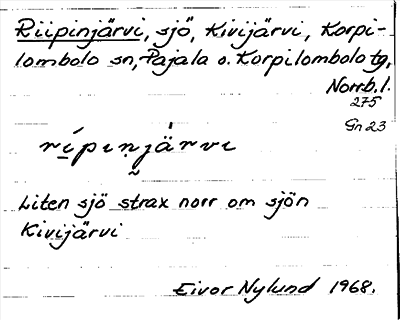 Riipinjärvi, sjö, Kivijärvi, Korpi-
lombolo sn, Pajala o. Korpilombolo tg,
Norrb. l.
275
Gn 23
rípinjärvi
Liten sjö strax norr om sjön
Kivijärvi
Eivor Nylund 1968.